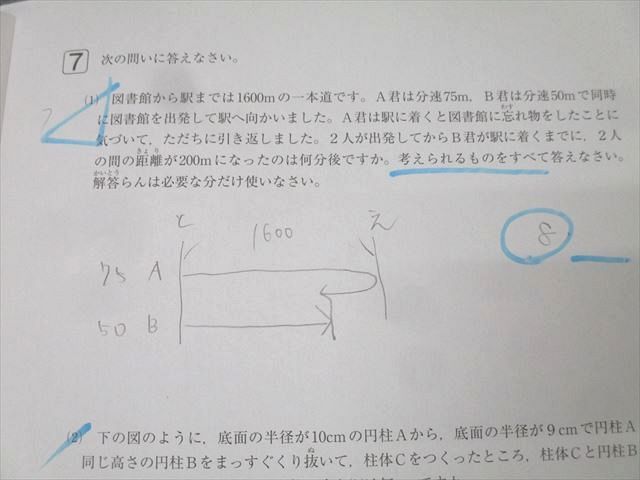 7 次の問いに答えなさい。
(1) 図書館から駅までは1600mの一本道です。A君は分速75m，B君は分速50mで同時
に図書館を出発して駅へ向かいました。A君は駅に着くと図書館に忘れ物をしたことに
気づいて，ただちに引き返しました。2人が出発してからB君が駅に着くまでに，2人
の間の距離が200mになったのは何分後ですか。考えられるものをすべて答えなさい。
解答らんは必要な分だけ使いなさい。
と 1600 え
8
75 A
50 B
(2) 下の図のように，底面の半径が10cmの円柱Aから，底面の半径が9cmで円柱A
同じ高さの円柱Bをまっすぐくり抜いて，柱体Cをつくったところ，柱体Cと円柱B